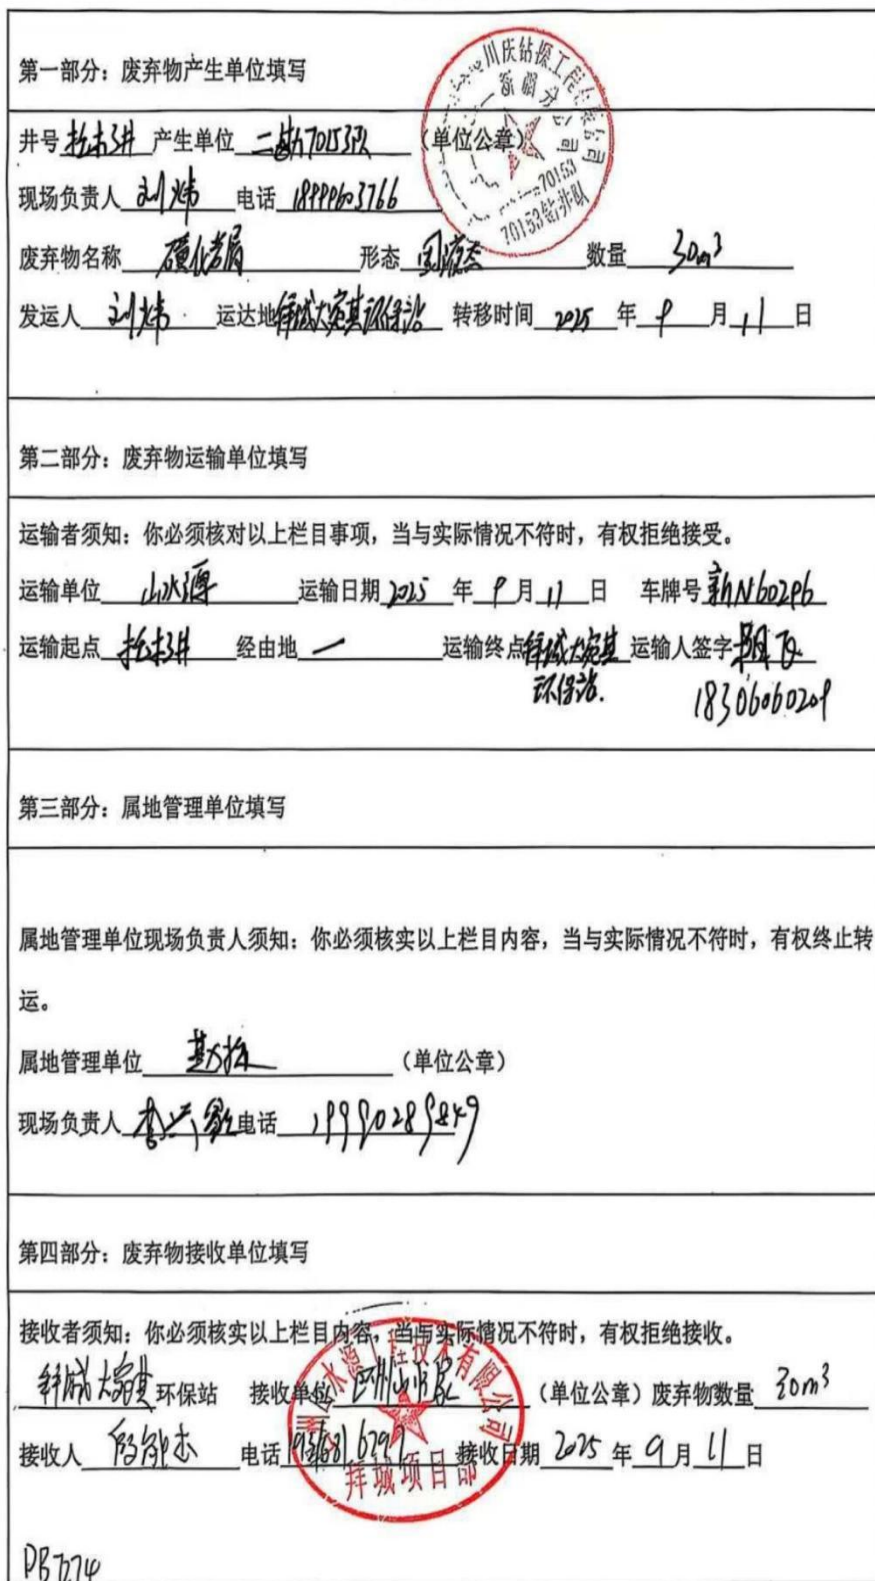 第一部分：废弃物产生单位填写
川庆钻探工程有限公司
新疆分公司
70153
70153钻井队
井号 产生单位 二勘70153队 （单位公章）
现场负责人 刘炜 电话 18999603766
废弃物名称 磺化岩屑 形态 固液态 数量 30m³
发运人 刘炜 运达地 拜城大宛其环保站 转移时间 2025 年 9 月 11 日
第二部分：废弃物运输单位填写
运输者须知：你必须核对以上栏目事项，当与实际情况不符时，有权拒绝接受。
运输单位 山水源 运输日期 2025 年 9 月 11 日 车牌号 新N60296
运输起点 经由地 一 运输终点 拜城大宛其 运输人签字
环保站.
18306060209
第三部分：属地管理单位填写
属地管理单位现场负责人须知：你必须核实以上栏目内容，当与实际情况不符时，有权终止转
运。
属地管理单位 （单位公章）
现场负责人 电话 19990289849
第四部分：废弃物接收单位填写
接收者须知：你必须核实以上栏目内容，当与实际情况不符时，有权拒绝接收。
拜城大宛其 环保站 接收单位 巴州山水源 （单位公章）废弃物数量 30m³
接收人 电话 接收日期 2025 年 9 月 11 日
拜城项目部
PB7274